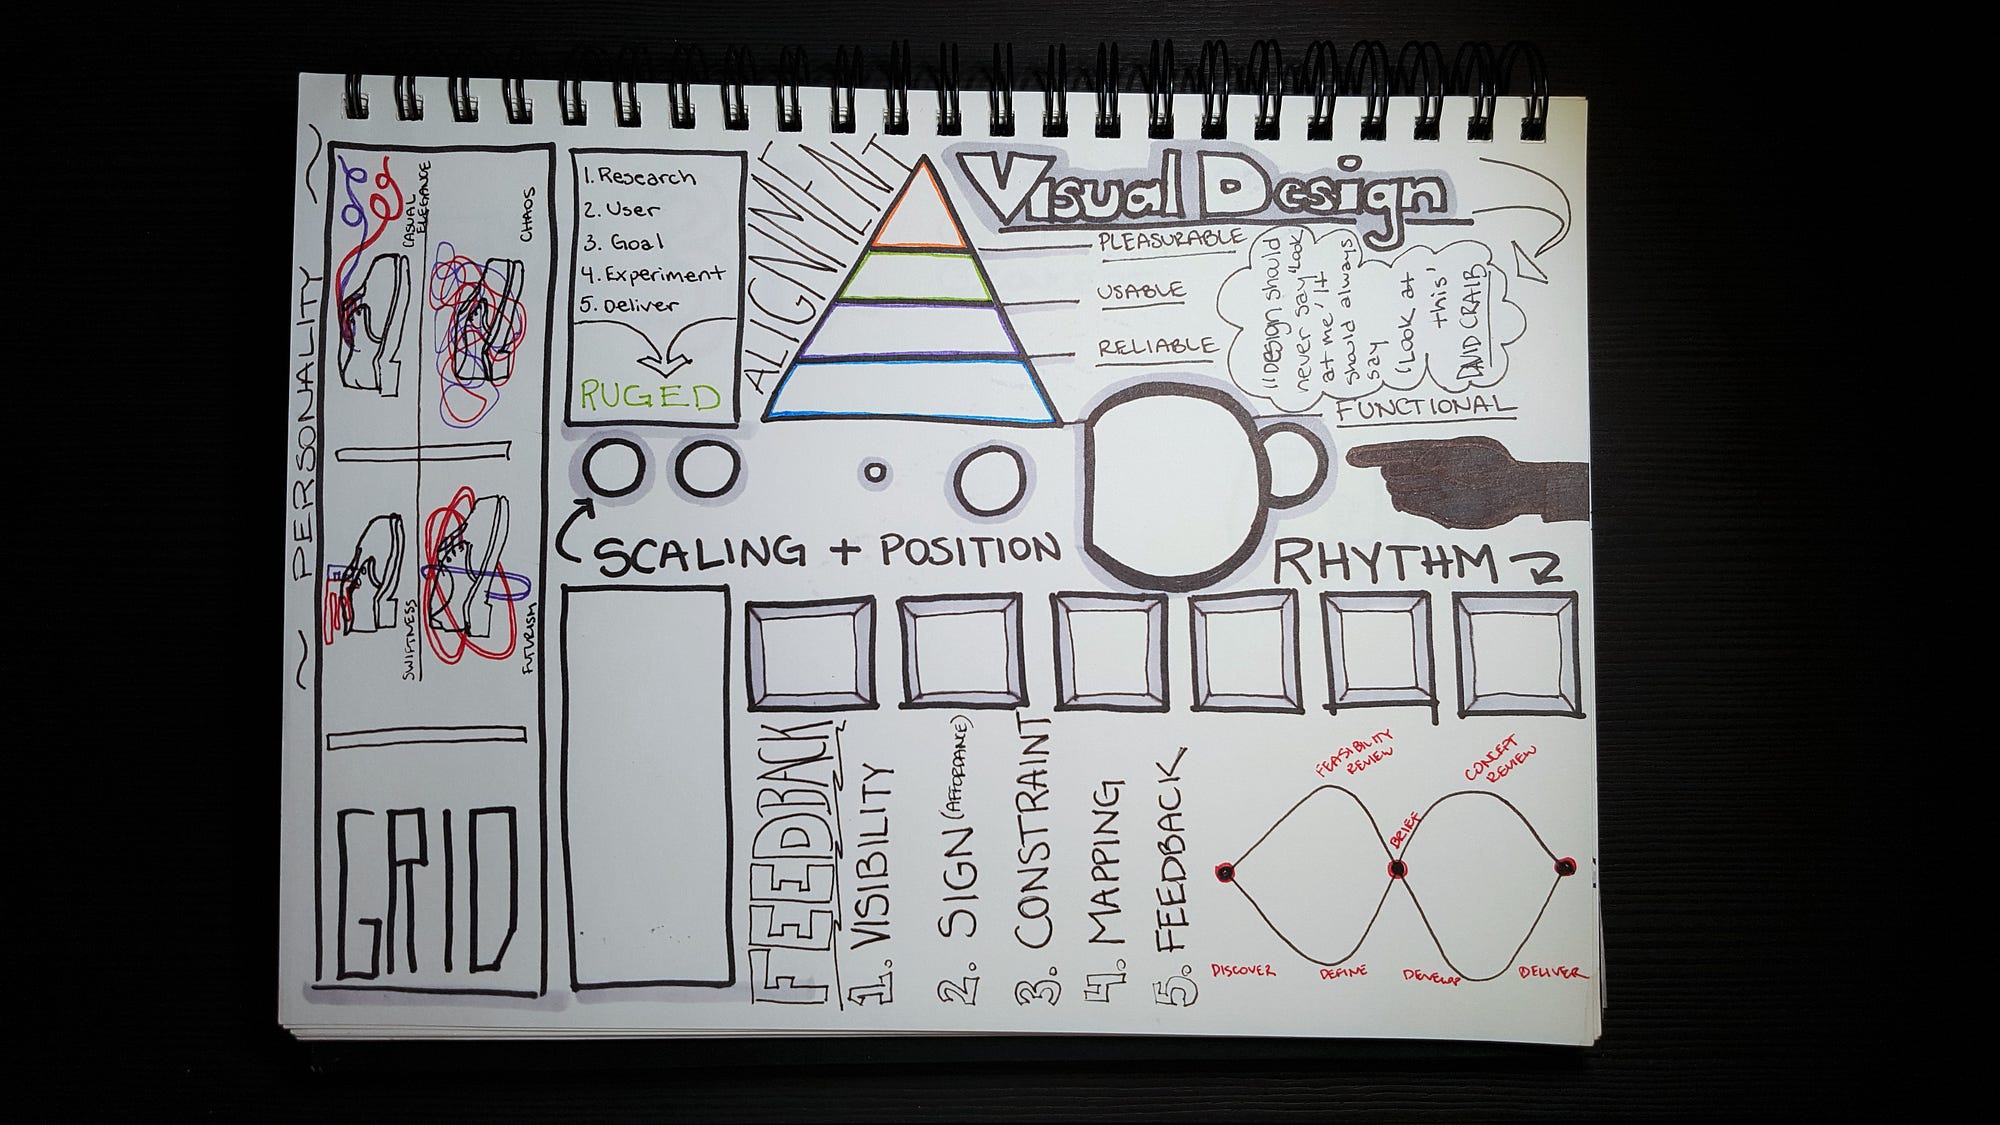 ~ PERSONALITY ~
CASUAL
ELEGANCE
CHAOS
SWIFTNESS
FUTURISM
GRID
1. Research
2. User
3. Goal
4. Experiment
5. Deliver
RUGED
ALIGNMENT
Visual Design
PLEASURABLE
USABLE
RELIABLE
FUNCTIONAL
"Design should
never say 'Look
at me,' It
should always
say
'Look at
this'
DAVID CRAIB
SCALING + POSITION
RHYTHM
FEEDBACK
1. VISIBILITY
2. SIGN (AFFORDANCE)
3. CONSTRAINT
4. MAPPING
5. FEEDBACK
FEASIBILITY
REVIEW
CONCEPT
REVIEW
BRIEF
DISCOVER
DEFINE
DEVELOP
DELIVER